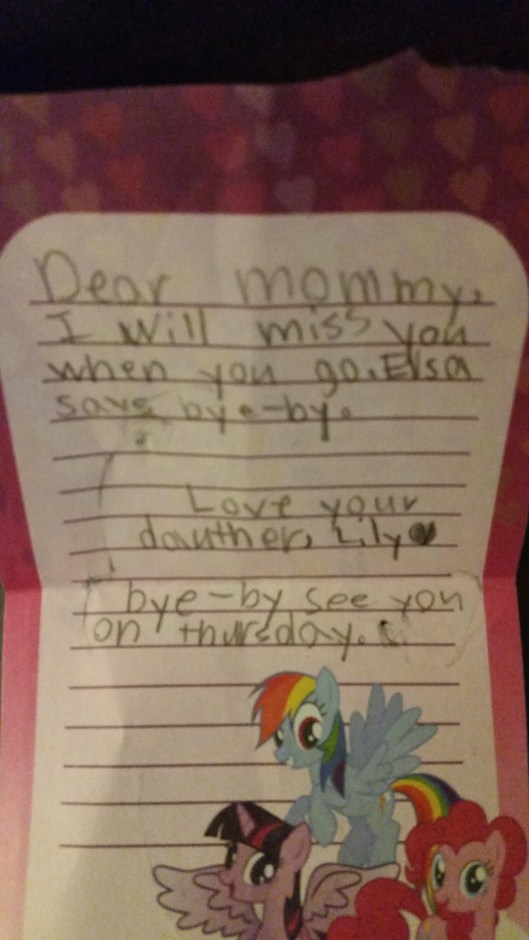 Dear mommy,
I will miss you
when you go. Elsa
says bye-by.
Love your
dauther, Lily
bye-by see you
on thursday.